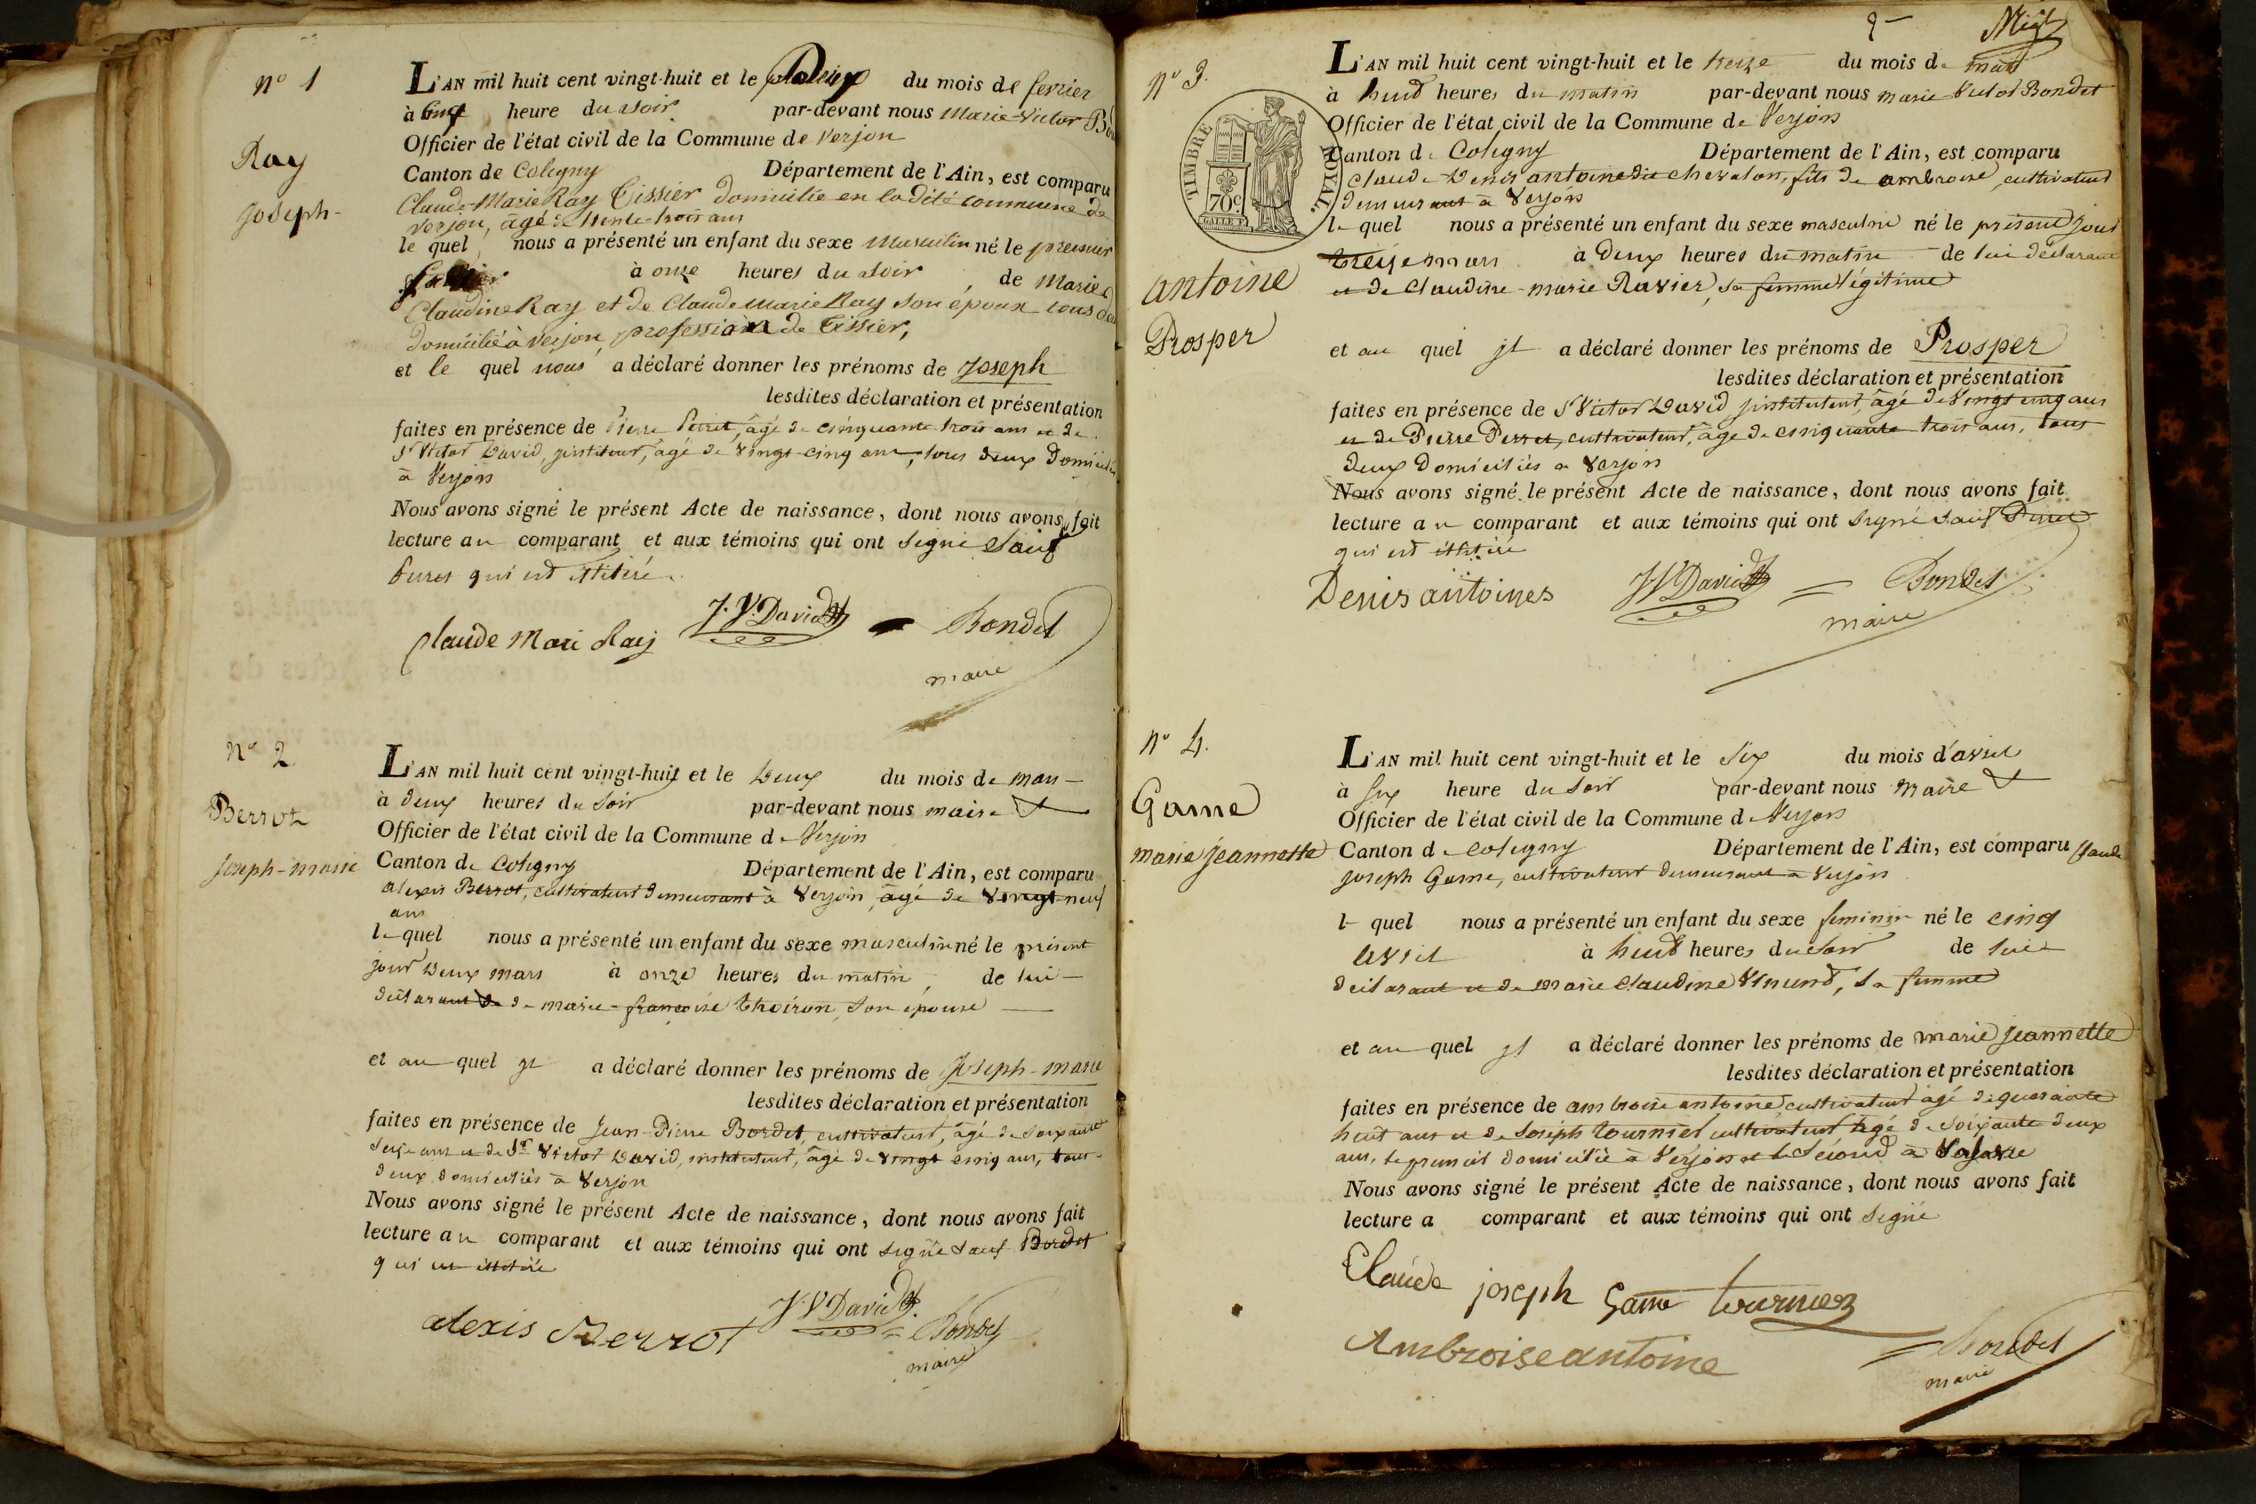 n° 1
Ray
joseph-
L'AN mil huit cent vingt-huit et le Deux du mois de fevrier
à heure du soir par-devant nous Marie-Victor
Officier de l'état civil de la Commune de Verjon
Canton de Coligny Département de l'Ain, est comparu
Claude-Marie Ray Tissier domicilié en la dite commune de
Verjon, âgé de trente-trois ans
le quel nous a présenté un enfant du sexe Masculin né le premier
à onze heures du soir, de Marie
Claudine Ray et de Claude Marie Ray son époux tous
domicilié à Verjon profession de Tissier,
et le quel nous a déclaré donner les prénoms de Joseph
lesdites déclaration et présentation
faites en présence de Pierre Perret, âgé de cinquante trois ans et de
Sr Victor David, jnstituteur, âgé de vingt-cinq ans, tous deux Domiciliés
à Verjon
Nous avons signé le présent Acte de naissance, dont nous avons fait
lecture au comparant et aux témoins qui ont signé Sauf
qui est illitéré
Claude Mari Ray J.V. David Bondet
maire
N° 2
Berrot
Joseph-marie
L'AN mil huit cent vingt-huit et le Deux du mois de mars
à deux heures du Soir par-devant nous maire
Officier de l'état civil de la Commune de Verjon
Canton de Coligny Département de l'Ain, est comparu
alexis Berrot, cultivateur demeurant à Verjon, âgé de vingt-neuf
ans
le quel nous a présenté un enfant du sexe masculin né le présent
jour Deux mars à onze heures du matin, de lui
déclarant de marie-françoise Thoiron, Son épouse
et au quel jl a déclaré donner les prénoms de Joseph-marie
lesdites déclaration et présentation
faites en présence de Jean-Pierre Bordet, cultivateur, âgé de soixante
Seize ans et de Sr Victor David, instituteur, âgé de vingt cinq ans, tous
deux domiciliés à Verjon
Nous avons signé le présent Acte de naissance, dont nous avons fait
lecture au comparant et aux témoins qui ont signé sauf Bordet
qui est illitéré
alexis Berrot J.V David Bondet
maire
2
N° 3.
TIMBRE ROYAL.
70c
antoine
Prosper
L'AN mil huit cent vingt-huit et le treize du mois de mars
à huit heures du matin par-devant nous marie Victor Bondet
Officier de l'état civil de la Commune de Verjon
Canton de Coligny Département de l'Ain, est comparu
Claude Denis antoine dit chevalon, fils de ambroise, cultivateur
demeurant à Verjon
le quel nous a présenté un enfant du sexe masculin né le présent jour
treize mars à deux heures du matin de lui déclarant
et de Claudine-marie Ravier, sa femme légitime
et au quel jl a déclaré donner les prénoms de Prosper
lesdites déclaration et présentation
faites en présence de Sr Victor David jnstituteur, âgé de vingt cinq ans
et de Pierre Perret, cultivateur, âgé de cinquante trois ans, tous
deux Domiciliés à Verjon
Nous avons signé le présent Acte de naissance, dont nous avons fait
lecture au comparant et aux témoins qui ont signé sauf Perret
qui est illitéré
Denis antoines JV David Bondet
maire
N° 4.
Game
marie jeannette
L'AN mil huit cent vingt-huit et le Six du mois d'avril
à Six heure du Soir par-devant nous Maire
Officier de l'état civil de la Commune de Verjon
Canton de Coligny Département de l'Ain, est comparu Claude
joseph Game, cultivateur demeurant à Verjon
le quel nous a présenté un enfant du sexe feminin né le cinq
avril à huit heures du soir de lui
déclarant et de marie Claudine, sa femme
et au quel jl a déclaré donner les prénoms de marie jeannette
lesdites déclaration et présentation
faites en présence de ambroise antoine cultivateur âgé de quarante
huit ans et de Joseph tournier cultivateur âgé de Soixante deux
ans, le premier domicilié à Verjon et le Second à
Nous avons signé le présent Acte de naissance, dont nous avons fait
lecture a comparant et aux témoins qui ont signé
Claude joseph Game tournier
Ambroise antoine Bondet
maire